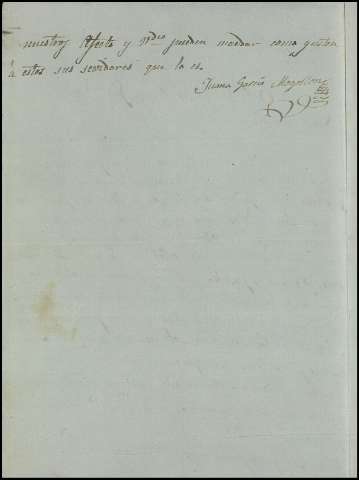 nuestros afecto y Vdes pueden mandar como gusten
á estos sus servidores que lo es.
Juana García